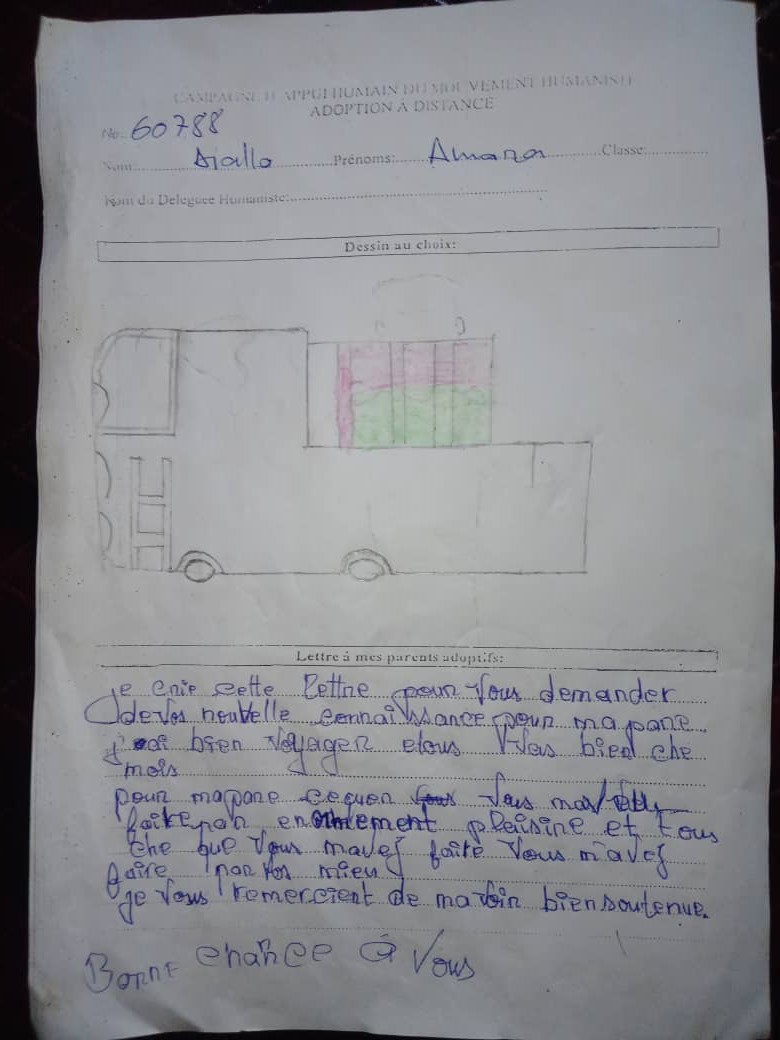 CAMPAGNE D'APPUI HUMAIN DU MOUVEMENT HUMANISTE
ADOPTION À DISTANCE
No: 60788
Nom: Diallo Prénoms: Amara Classe:
Nom du Deleguee Humaniste:
Dessin au choix:
Lettre à mes parents adoptifs:
je crie cette lettre pour vous demander
de vos nouvelle connaissance pour ma pare
j' ai bien voyager etous vas bien che
mois
pour ma pare cequen vous
faite pan enormement plaisine et tous
che que vous mavez faite vous m'avez
faire par vos mieu
je vous remercient de mavoin bien soutenue.
Bonne chance à vous